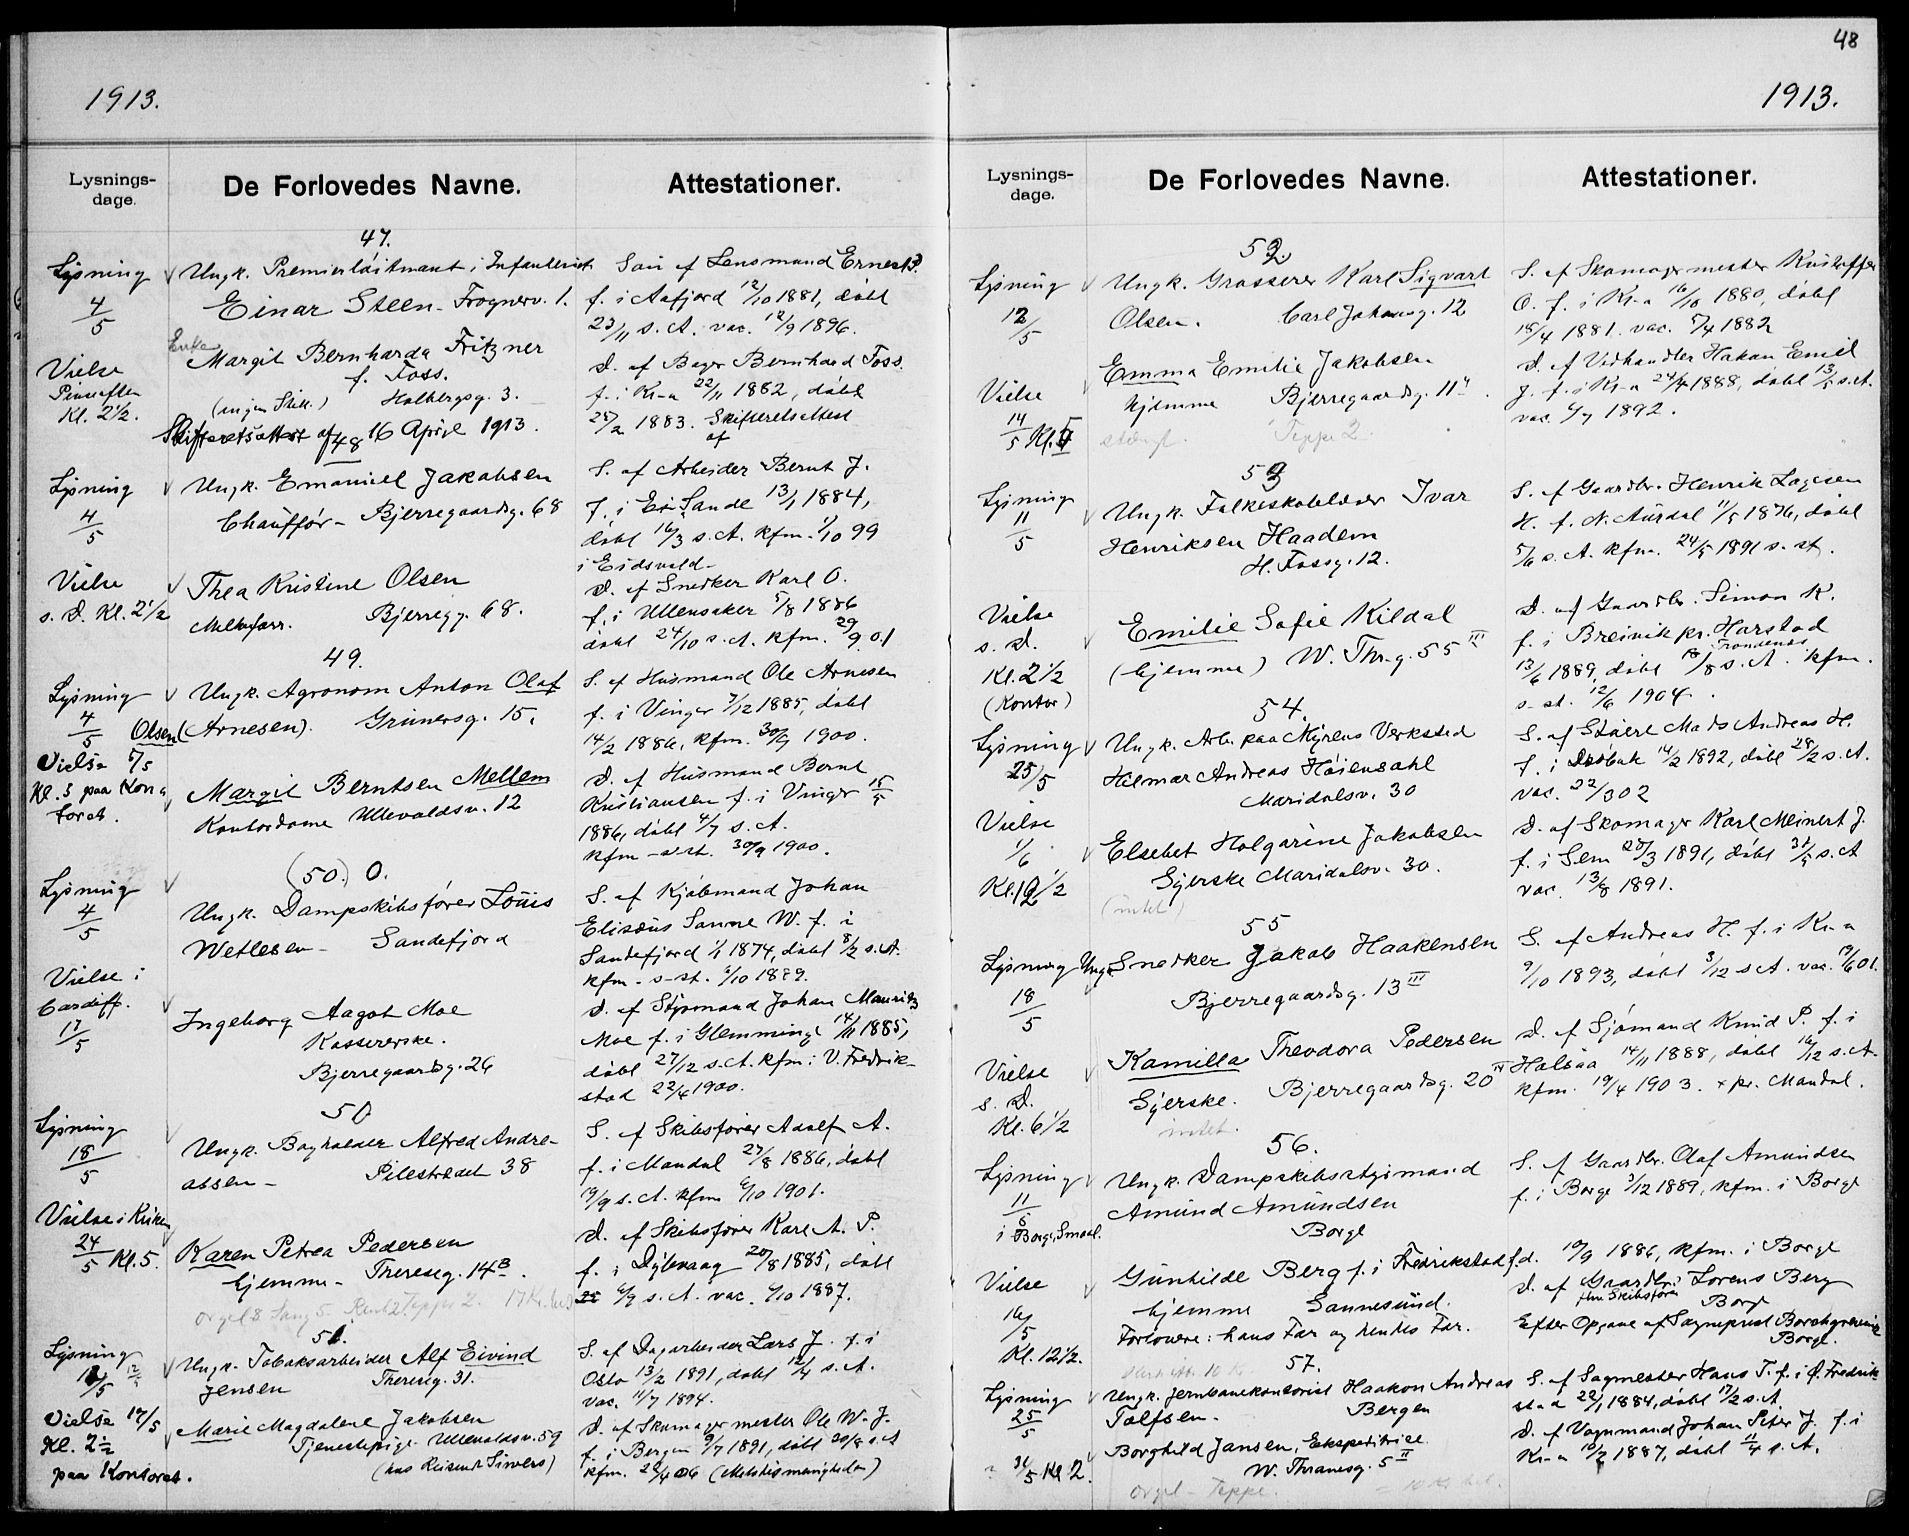 48
1913.
1913.
Lysnings-
dage.
De Forlovedes Navne.
Attestationer.
47.
Lysning
4/5
Ungk. Premierløitnant i Infanteriet
Einar Steen - Frognerv. 1.
Søn af Lensmand Ernest
f. i Aafjord 12/10 1881, døbt
23/11 s. A. vac. 12/9 1896.
Vielse
Pinseaften
Kl. 2½.
Enke
Margit Bernharda Fritzner
f. Foss.
(ingen Skill.) Holbergsg. 3.
Skifteretsattest af 16 April 1913.
D. af Bager Bernhard Foss
f. i Kr-a 22/11 1882, døbt
25/2 1883. Skifteretsattest
af
48
Lysning
4/5
Ungk. Emanuel Jakobsen
Chauffør - Bjerregaardsg. 68
S. af Arbeider Bernt J.
f. i Ei Sande 13/1 1884,
døbt 16/3 s. A. kfm. 1/10 99
i Eidsvold -
Vielse
s. D. Kl. 2½
Thea Kristine Olsen
Bjerregg. 68.
D. af Snedker Karl O.
f. i Ullensaker 5/8 1886
døbt 24/10 s. A. kfm. 29/9 01
49.
Lysning
4/5
Ungk. Agronom Anton Olaf
Olsen (Arnesen). Grünersg. 15.
S. af Husmand Ole Arnesen
f. i Vinger 7/12 1885, døbt
14/2 1886, kfm. 30/9 1900.
Vielse 5/5
Kl. 3 paa Kon
toret.
Margit Berntsen Mellem
Kontordame Ullevoldsv. 12
D. af Husmand Bernt
Kristiansen f. i Vinger 15/5
1886, døbt 4/7 s. A.
kfm - s. st. 30/9 1900.
(50.) O.
Lysning
4/5
Ungk. Dampskibsfører Louis
Wetlesen - Sandefjord
S. af Kjøbmand Johan
Elisæus Sanne W. f. i
Sandefjord 1/1 1874, døbt 8/2 s. A.
kfm. s. st. 6/10 1889.
Vielse i
Cardiff.
17/5
Ingeborg Aagot Moe
Kassererske.
Bjerregaardsg. 26
D. af Styrmand Johan Mauritz
Moe f. i Glemminge 14/11 1885,
døbt 27/12 s. A. kfm. i V. Fredrik-
stad 22/4 1900.
50
Lysning
18/5
Ungk. Bogholder Alfred Andre-
assen - Pilestrædet 38
S. af Skibsfører Adolf A.
f. i Mandal 27/8 1886, døbt
19/9 s. A. kfm 6/10 1901.
Vielse i Kirken
24/5 Kl. 5.
Karen Petrea Pedersen
hjemme - Theresesg. 14B.
D. af Skibsfører Karl A. P.
f. i Dybvaag 20/8 1885, døbt
6/9 s. A. vac. 4/10 1887.
51.
Lysning
12/5
Ungk. Tobaksarbeider Alf Eivind
Jensen Theresesg. 31.
S. af Dagarbeider Lars J. f. i
Oslo 13/2 1891, døbt 12/4 s. A.
vac. 11/7 1894.
Vielse 17/5
Kl. 2½
paa Kontoret.
Marie Magdalene Jakobsen
Tjenestepige Ullevoldsv. 59
D. af Skomagermester Ole W. J.
f. i Bergen 9/7 1891, døbt 30/8 s. A
kfm. 22/4 06 (Metodistmenigheden)
Lysnings-
dage.
De Forlovedes Navne.
Attestationer.
52
Lysning
12/5
Ungk. Grosserer Karl Sigvart
Olsen. Carl Johansg. 12
S. af Skomagermester Kristoffer
O. f. i Kr-a 16/10 1880, døbt
18/4 1881. vac. 5/4 1882
Vielse
14/5 Kl.
Emma Emilie Jakobsen
hjemme Bjerregaardsg. 11
D. af Vedhandler Hakon Emil
J. f. i Kr-a 24/4 1888, døbt 13/5 s. A.
vac. 4/7 1892.
Teppe 2
53
Lysning
11/5
Ungk. Folkeskolelærer Ivar
Henriksen Haadem
H. Fossg. 12.
S. af Gaardbr. Henrik Lagesen
H. f. N. Aurdal 11/5 1876, døbt
5/6 s. A. kfm. 24/5 1891 s. st.
Vielse
s. D.
Kl. 2½
(Kontor)
Emilie Sofie Kildal
(hjemme) W. Thr.g. 55 III
D. af Gaardbr. Simon K.
f. i Breivik pr. Harstad
Trondenes
13/6 1889, døbt 18/8 s. A. kfm.
s. st. 12/6 1904.
54.
Lysning
25/5
Ungk. Arb. paa Myrens Verksted
Hilmar Andreas Høiensahl
Maridalsv. 30
S. af Støere Mads Andreas H.
f. i Drøbak 14/2 1892, døbt 28/2 s. A.
vac. 22/3 02
Vielse
1/6
Kl. 12½
Elsebet Holgarine Jakobsen
Syerske Maridalsv. 30.
(intet)
D. af Skomager Karl Meinert J.
f. i Sem 25/3 1891, døbt 31/5 s. A
vac. 13/8 1891.
55
Lysning
18/5
Ungk. Snedker Jakob Haakensen
Bjerregaardsg. 13 III
S. af Andreas H. f. i Kr-a
9/10 1893, døbt 3/12 s A. vac. 19/6 01.
Vielse
s. D.
Kl. 6½
Kamilla Theodora Pedersen
Syerske. Bjerregaardsg. 20 IV
intet.
D. af Sjømand Knud P. f. i
Halsaa 14/11 1888, døbt 16/12 s. A.
kfm. 19/4 1903. + pr. Mandal.
56.
Lysning
11/5
i Borge, Smaal.
Ungk. Dampskibsstyrmand
Amund Amundsen
Borge
S. af Gaardbr. Olaf Amundsen
f. i Borge 3/12 1889, kfm. i Borge
Vielse
16/5
Kl. 12½.
Gunhilde Berg f. i Fredrikstad f. d.
hjemme Sannesund.
Forlovere: hans Far og hendes Far.
10/9 1886, kfm. i Borge
D. af Gaardbr. Lorens Berg
fhv. Skibsfører Borge
Efter Opgave af Sogneprest Borchgrevink
Borge.
57.
Lysning
25/5
Ungk. Jernbanekontorist Haakon Andreas
Tolfsen. Bergen
S. af Sagmester Hans T. f. i Ø. Fredrik
stad 22/1 1884, døbt 17/2 s. A.
31/5 Kl 2.
Borghild Jansen, Ekspeditrice
W. Thranesg. 5 II
Orgel - Teppe.
D. af Vognmand Johan Peter J. f. i
Kr-a 10/2 1887, døbt 11/4 s. A.